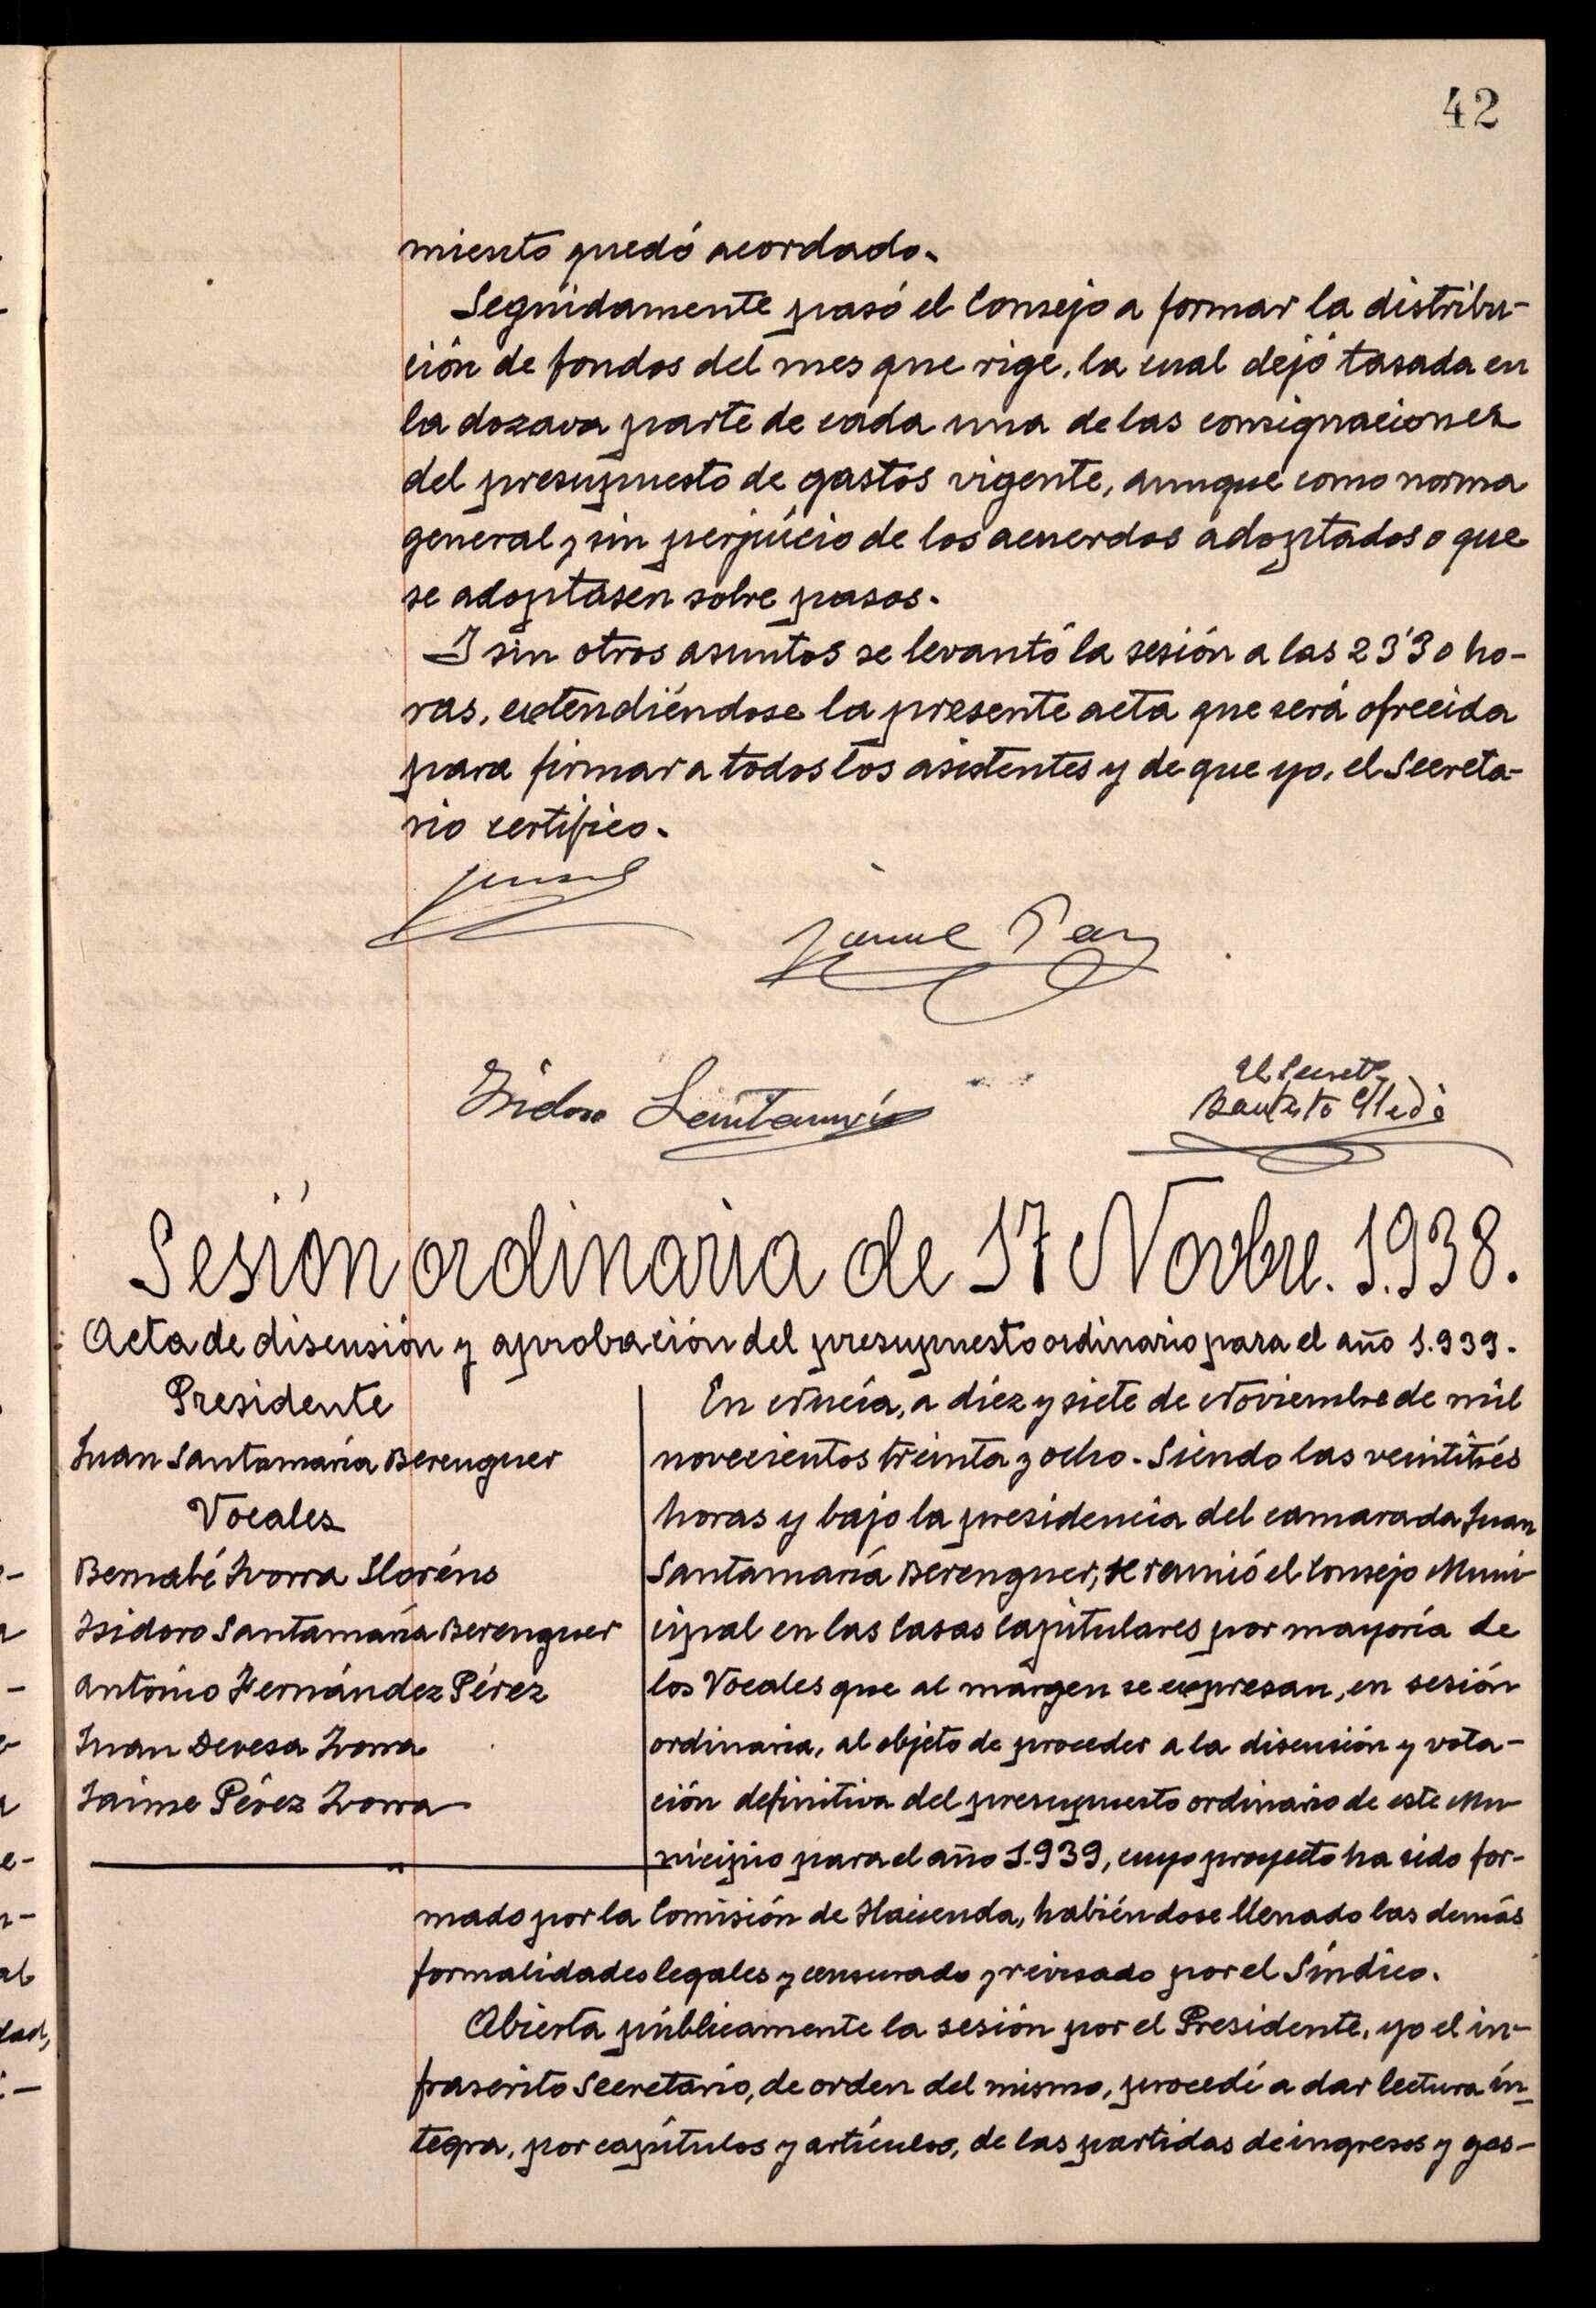 42
miento quedó acordado.
Seguidamente pasó el Consejo a formar la distribu-
ción de fondos del mes que rige, la cual dejó tasada en
la dozava parte de cada una de las consignaciones
del presupuesto de gastos vigente, aunque como norma
general y sin perjuicio de los acuerdos adoptados o que
se adoptasen sobre pasos.
I sin otros asuntos se levantó la sesión a las 23'30 ho-
ras, extendiéndose la presente acta que será ofrecida
para firmar a todos los asistentes y de que yo, el Secreta-
rio certifico.
Isidoro Santamaría
El Secret.
Bautista Lledó
Sesión ordinaria de 17 Novbre. 1.938.
Acta de discusión y aprobación del presupuesto ordinario para el año 1.939.
Presidente
Juan Santamaría Berenguer
Vocales
Bernabé Ivorra Lloréns
Isidoro Santamaría Berenguer
Antonio Fernández Pérez
Juan Devesa Ivorra
Jaime Pérez Ivorra
En Nucía, a diez y siete de Noviembre de mil
novecientos treinta y ocho. Siendo las veintitrés
horas y bajo la presidencia del camarada Juan
Santamaría Berenguer, se reunió el Consejo Muni-
cipal en las Casas Capitulares por mayoría de
los Vocales que al margen se expresan, en sesión
ordinaria, al objeto de proceder a la discusión y vota-
ción definitiva del presupuesto ordinario de este Mu-
nicipio para el año 1.939, cuyo proyecto ha sido for-
mado por la Comisión de Hacienda, habiéndose llenado las demás
formalidades legales y censurado y revisado por el Síndico.
Abierta públicamente la sesión por el Presidente, yo el in-
frascrito Secretario, de orden del mismo, procedí a dar lectura ín-
tegra, por capítulos y artículos, de las partidas de ingresos y gas-